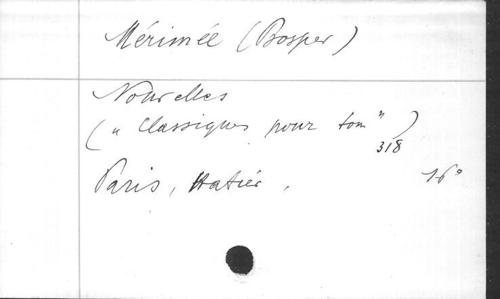 Mérimée (Bosper)
Nouvelles
(" Classiques pour tous ")
318
Paris, Hatier, 16°